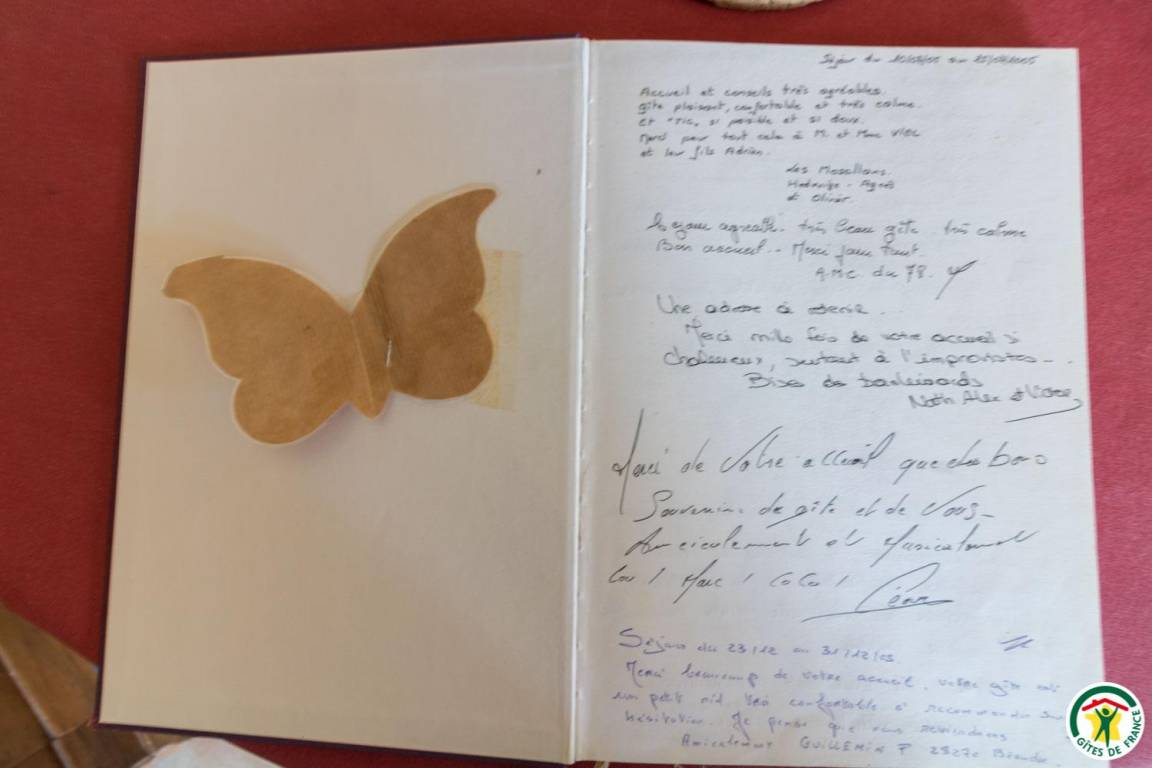 Séjour du
Accueil et conseils très agréables.
gîte plaisant, confortable et très calme.
et si paisible et si doux.
Merci pour tout cela à M. et Mme
et leur fils Adrien.
Les Mosellans.
Hedwige - Agnès
et Olivier.
Séjour agréable - très beau gîte très calme
Bon accueil - Merci pour tout.
A.M.C. du 78.
Une adresse à
Merci mille fois de votre accueil si
chaleureux, surtout à l'improviste
Bises de
Nath Alex et
Merci de Votre accueil que des bons
Souvenirs de gîte et de Vous
Amicalement et Musicalement
Lou / Marc / CoCo /
Séjour du 23/12 au 31/12/05
Merci beaucoup de votre accueil, votre gîte est
un petit nid très confortable à recommander sans
hésitation. Je pense que nous reviendrons
Amicalement GUILLEMIN P
GÎTES DE FRANCE